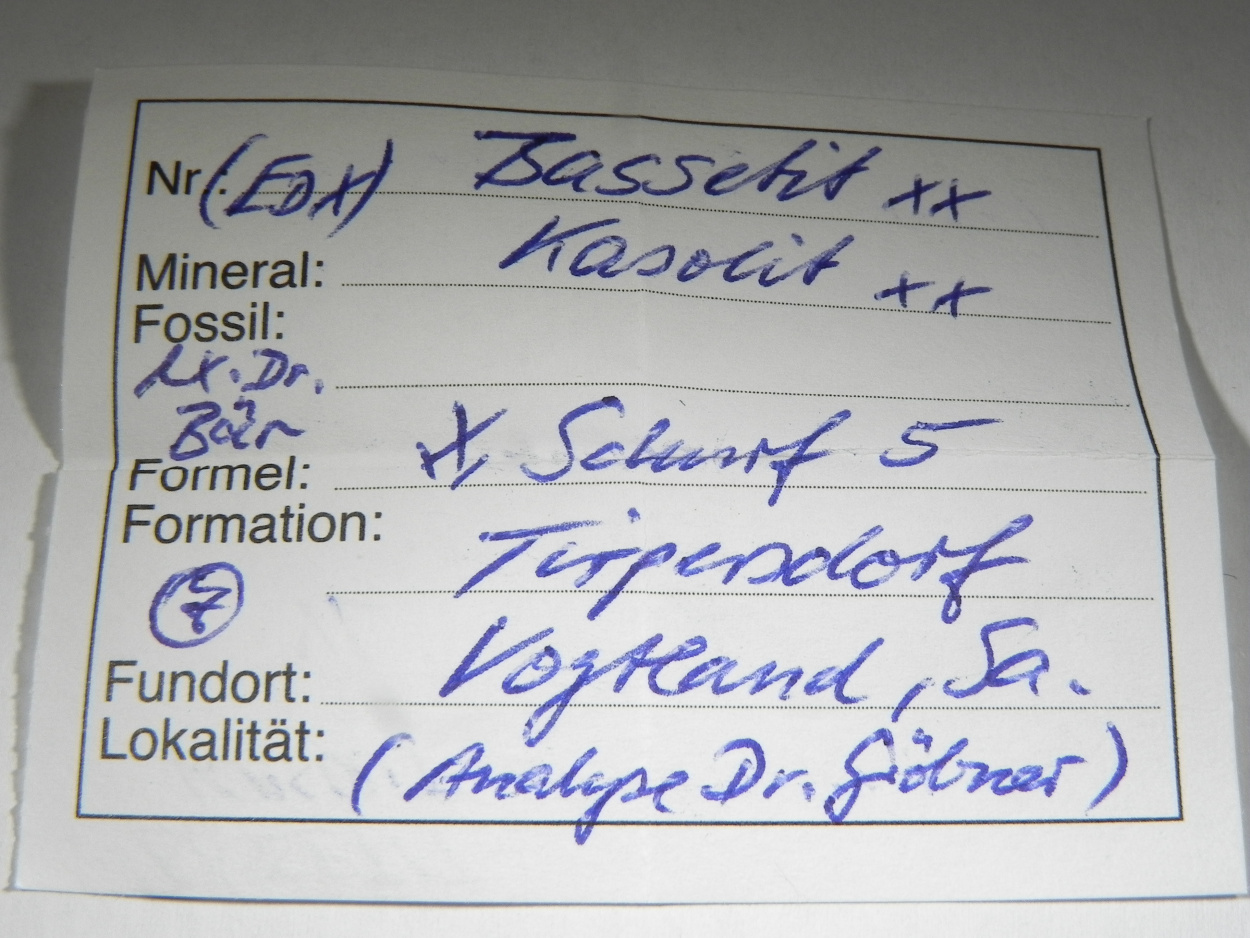 Nr.: (EDX) Bassetit xx
Mineral: Kasolit xx
Fossil:
Dr.
Bär X Schurf 5
Formel:
Formation: Tirpersdorf
7
Vogtland, Sa.
Fundort:
Lokalität: (Analyse Dr. Göbner)